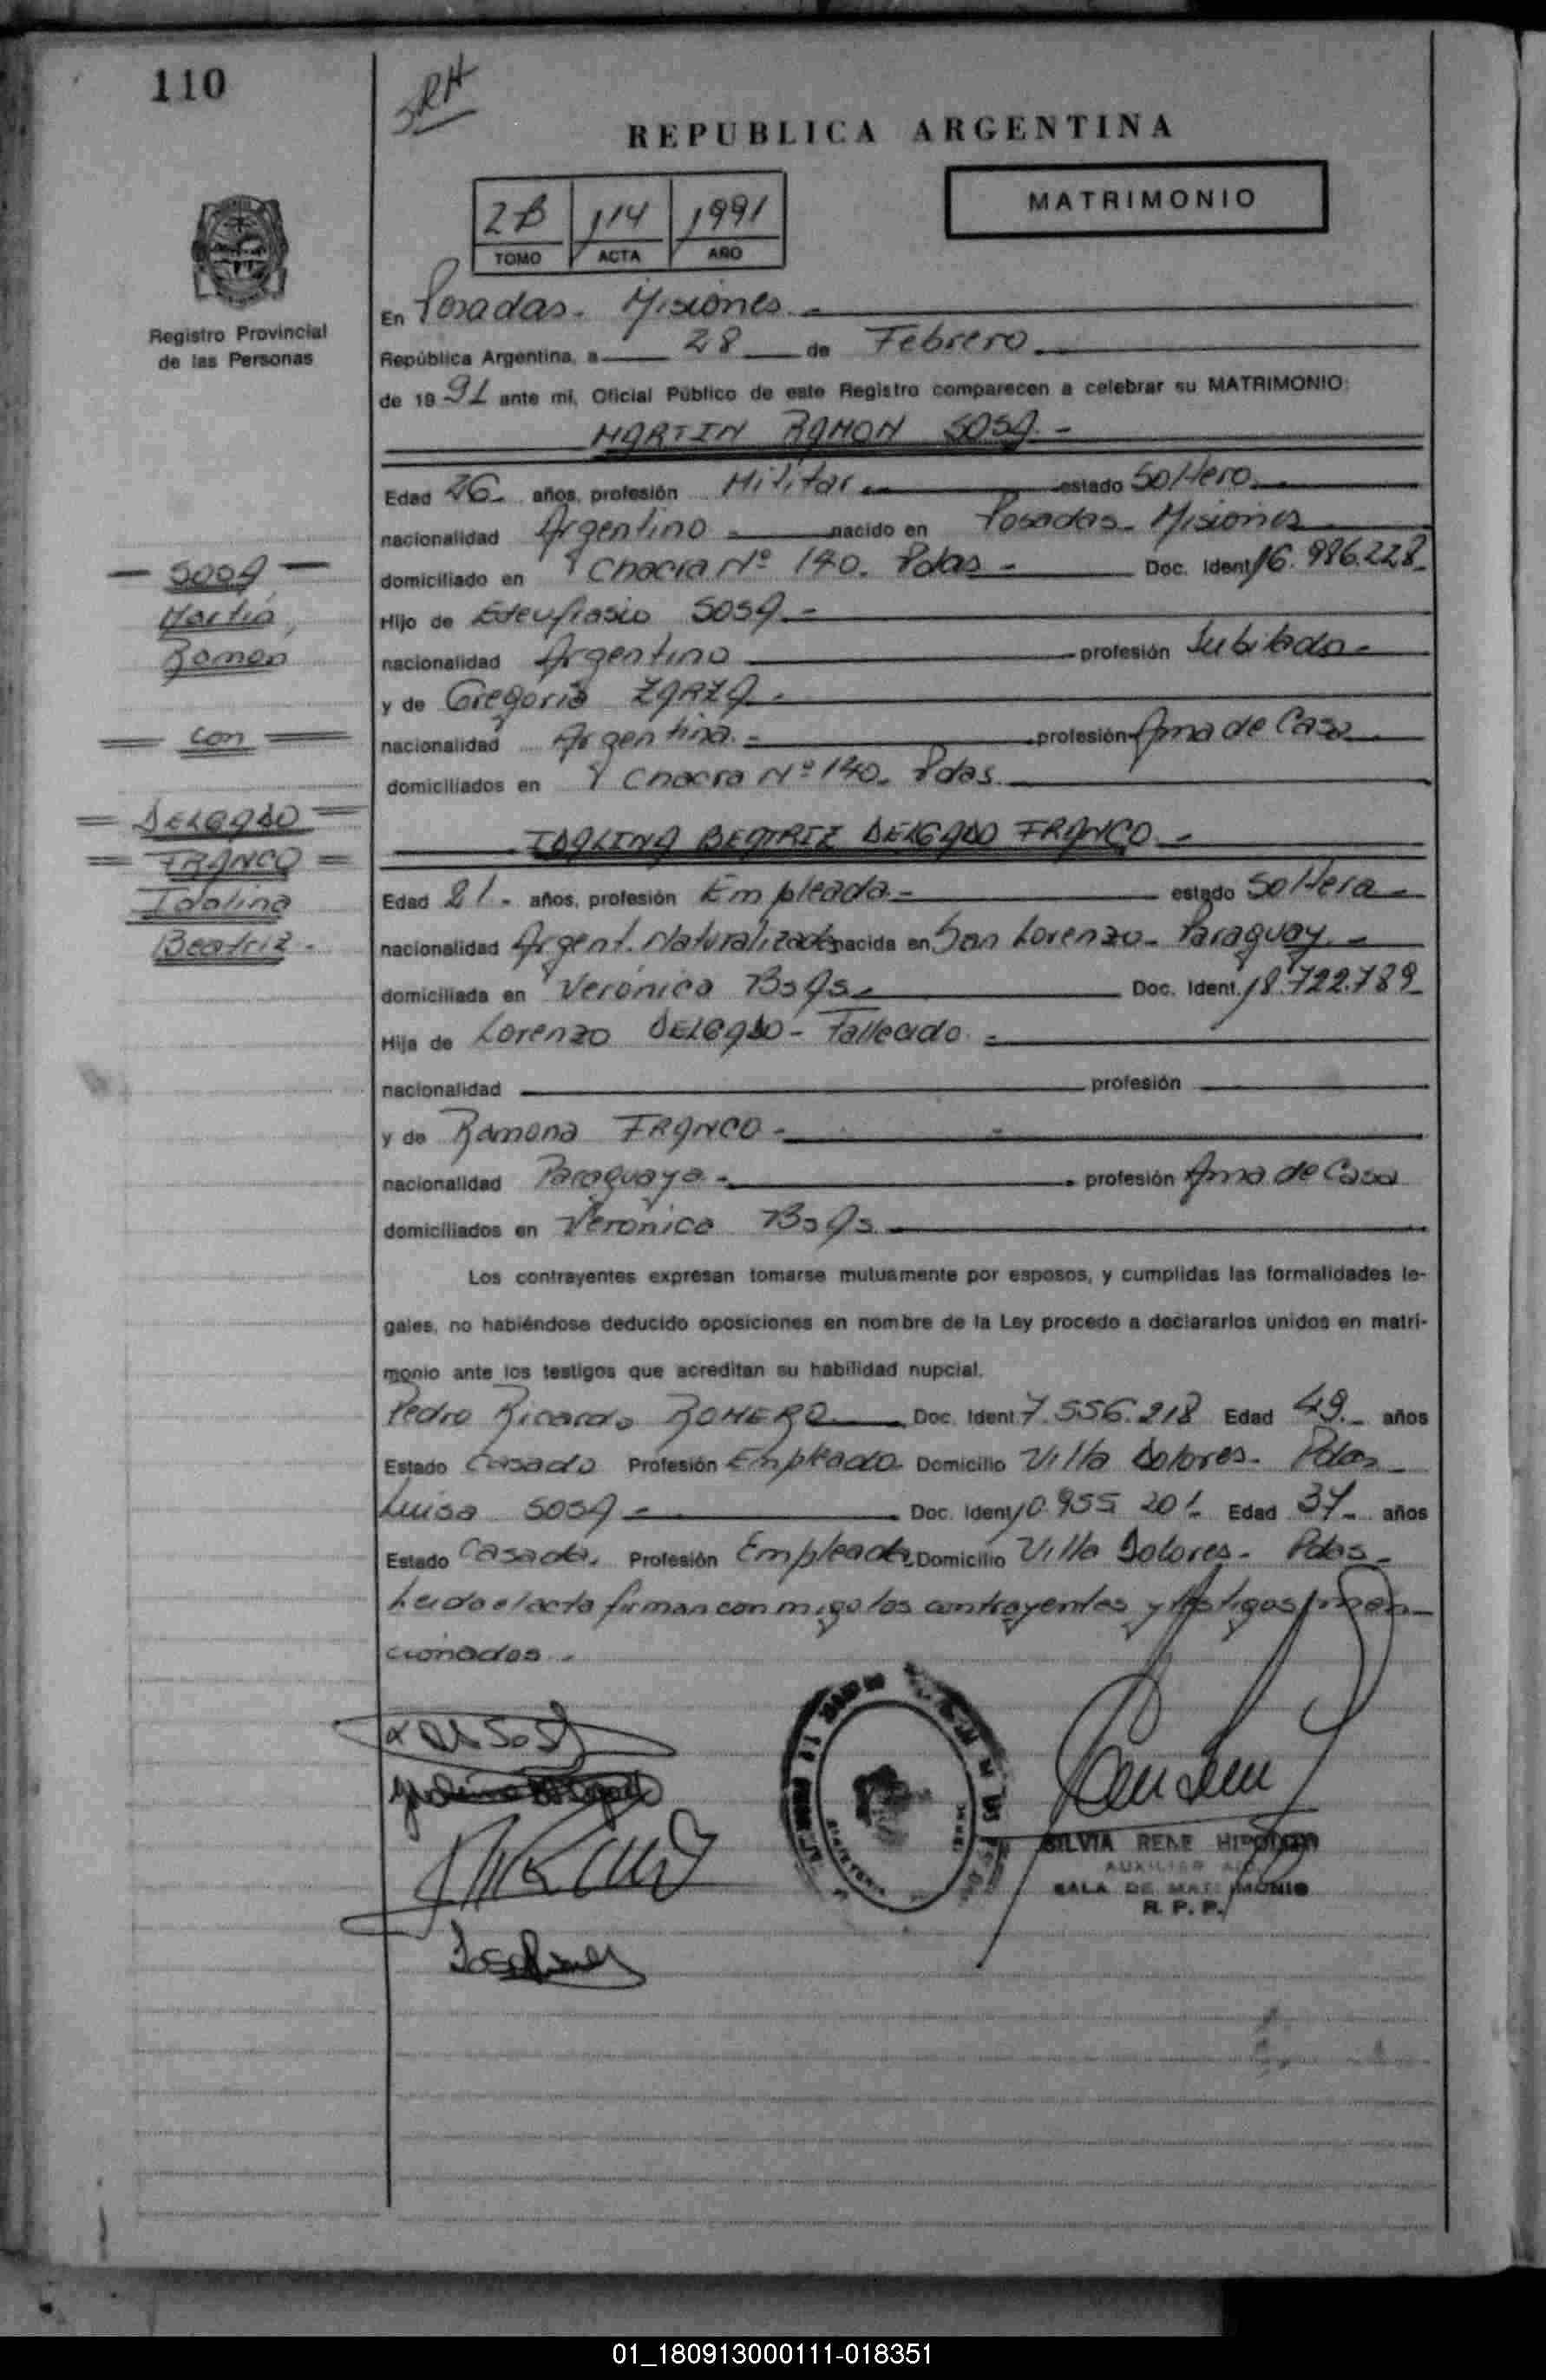 110
SRH
REPUBLICA ARGENTINA
MATRIMONIO
2B 114 1991
TOMO ACTA AÑO
Registro Provincial
de las Personas
En Posadas - Misiones -
República Argentina, a 28 de Febrero
de 1991 ante mi, Oficial Público de este Registro comparecen a celebrar su MATRIMONIO:
MARTIN RAMON SOSA -
Edad 26 - años, profesión Militar - estado Soltero
nacionalidad Argentino - nacido en Posadas - Misiones
domiciliado en Chacra Nº 140. Pdas - Doc. Ident. 16.986.228 -
Hijo de SOSA -
nacionalidad Argentino profesión Jubilado -
y de Gregoria ZARZA -
nacionalidad Argentina - profesión Ama de Casa
domiciliados en Chacra Nº 140 - Pdas.
IDALINA BEATRIZ DELGADO FRANCO -
Edad 21 - años, profesión Empleada - estado Soltera -
nacionalidad Argent. Naturalizada nacida en San Lorenzo - Paraguay -
domiciliada en Verónica Bs As - Doc. Ident. 18.722.789
Hija de Lorenzo DELGADO - Fallecido -
nacionalidad profesión
y de Ramona FRANCO -
nacionalidad Paraguaya - profesión Ama de Casa
domiciliados en Verónica Bs As
Los contrayentes expresan tomarse mutuamente por esposos, y cumplidas las formalidades le-
gales, no habiéndose deducido oposiciones en nombre de la Ley procedo a declararlos unidos en matri-
monio ante los testigos que acreditan su habilidad nupcial.
Pedro Ricardo ROMERO Doc. Ident. 7.556.218 Edad 49 - años
Estado Casado Profesión Empleado Domicilio Villa Dolores - Pdas
Luisa SOSA - Doc. Ident. 10.955.201 - Edad 37 - años
Estado Casada. Profesión Empleada Domicilio Villa Dolores - Pdas -
Leido el acta firman con migo los contrayentes y testigos men-
cionados.
SOSA
Martin,
Ramon
con
DELGADO
FRANCO
Idalina
Beatriz -
SILVIA RENE
AUXILIAR
SALA DE MATRIMONIO
R. P. P.
01_180913000111-018351